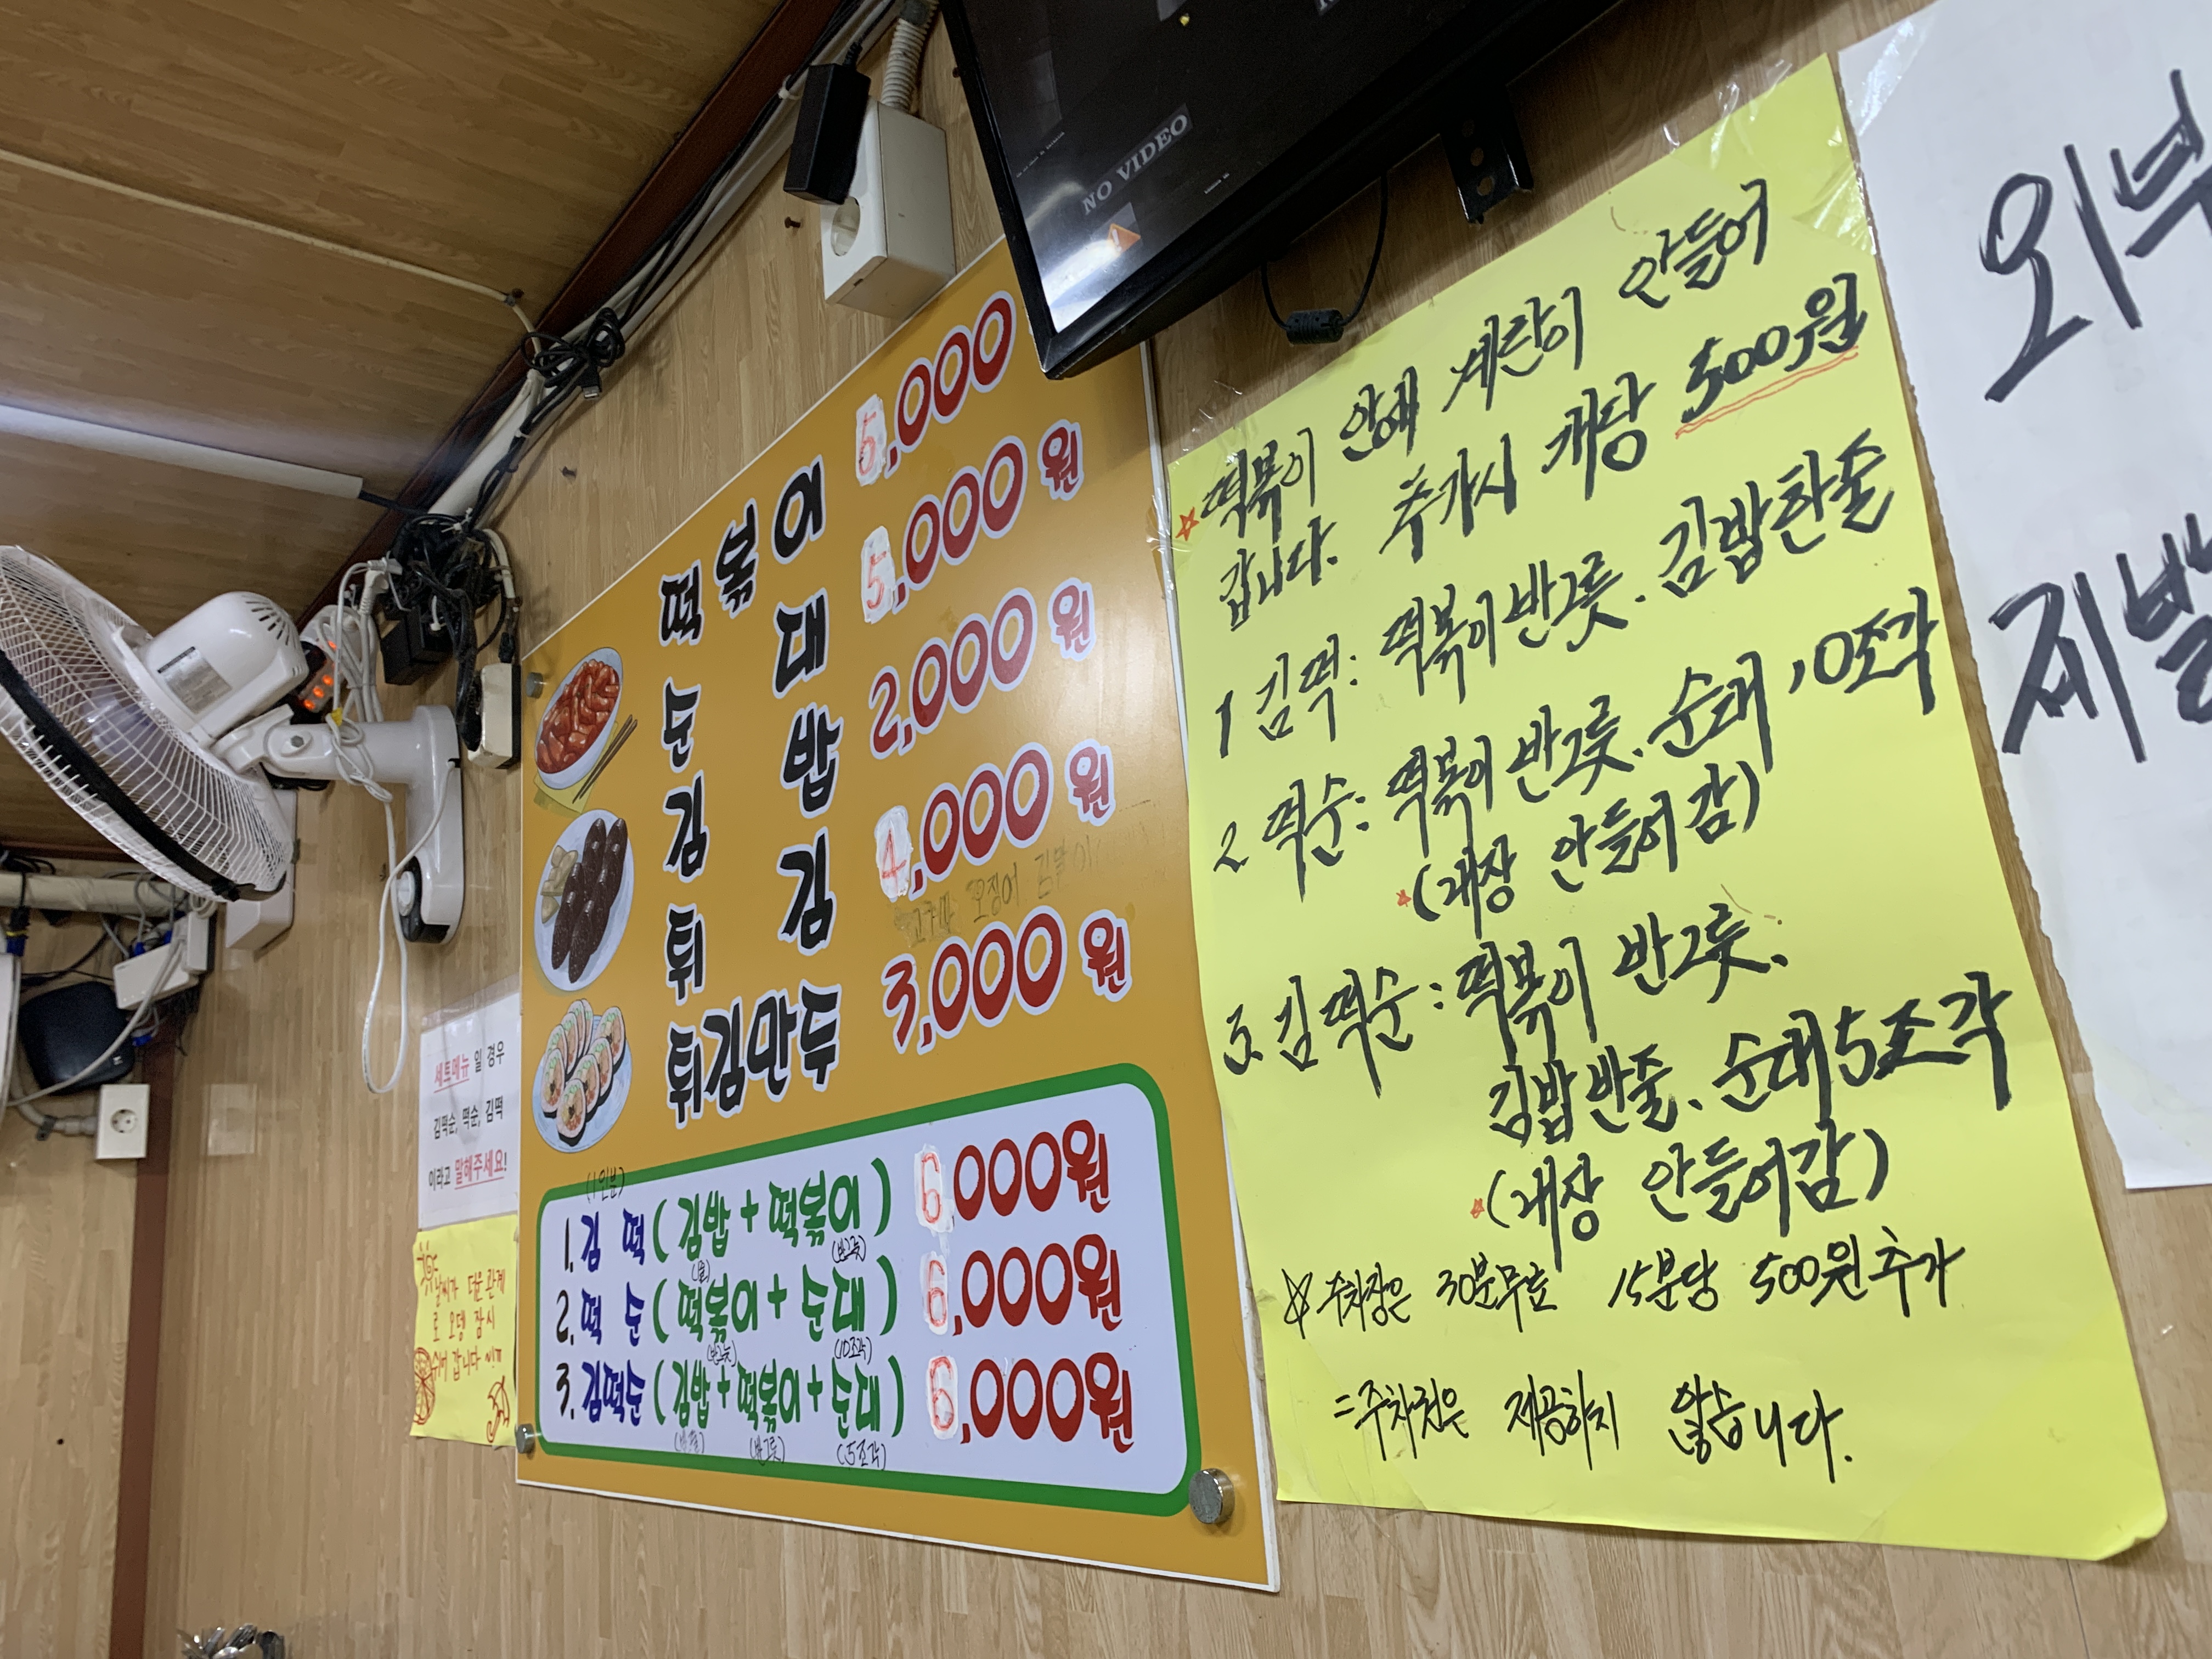 NO VIDEO
떡볶이 5,000
순대 5,000원
김밥 2,000원
튀김 4,000원
고구마 오징어 김말이
튀김만두 3,000원
(1인분)
1. 김떡 (김밥 + 떡볶이) 6,000원
(반그릇)
2. 떡순 (떡볶이 + 순대) 6,000원
(반그릇) (10조각)
3. 김떡순 (김밥 + 떡볶이 + 순대) 6,000원
(반줄) (반그릇) (5조각)
세트메뉴 일 경우
김떡순, 떡순, 김떡
이라고 말해주세요!
날씨가 더운 관계
로 오뎅 잠시
쉬어 갑니다
☆떡볶이 안에 계란이 안들어
갑니다. 추가시 개당 500원
1 김떡: 떡볶이 반그릇. 김밥한줄
2 떡순: 떡볶이 반그릇. 순대 10조각
*(내장 안들어감)
3. 김떡순: 떡볶이 반그릇.
김밥반줄. 순대5조각
*(내장 안들어감)
☆주차장은 30분무료 15분당 500원추가
=주차권은 제공하지 않습니다.
외부
제발